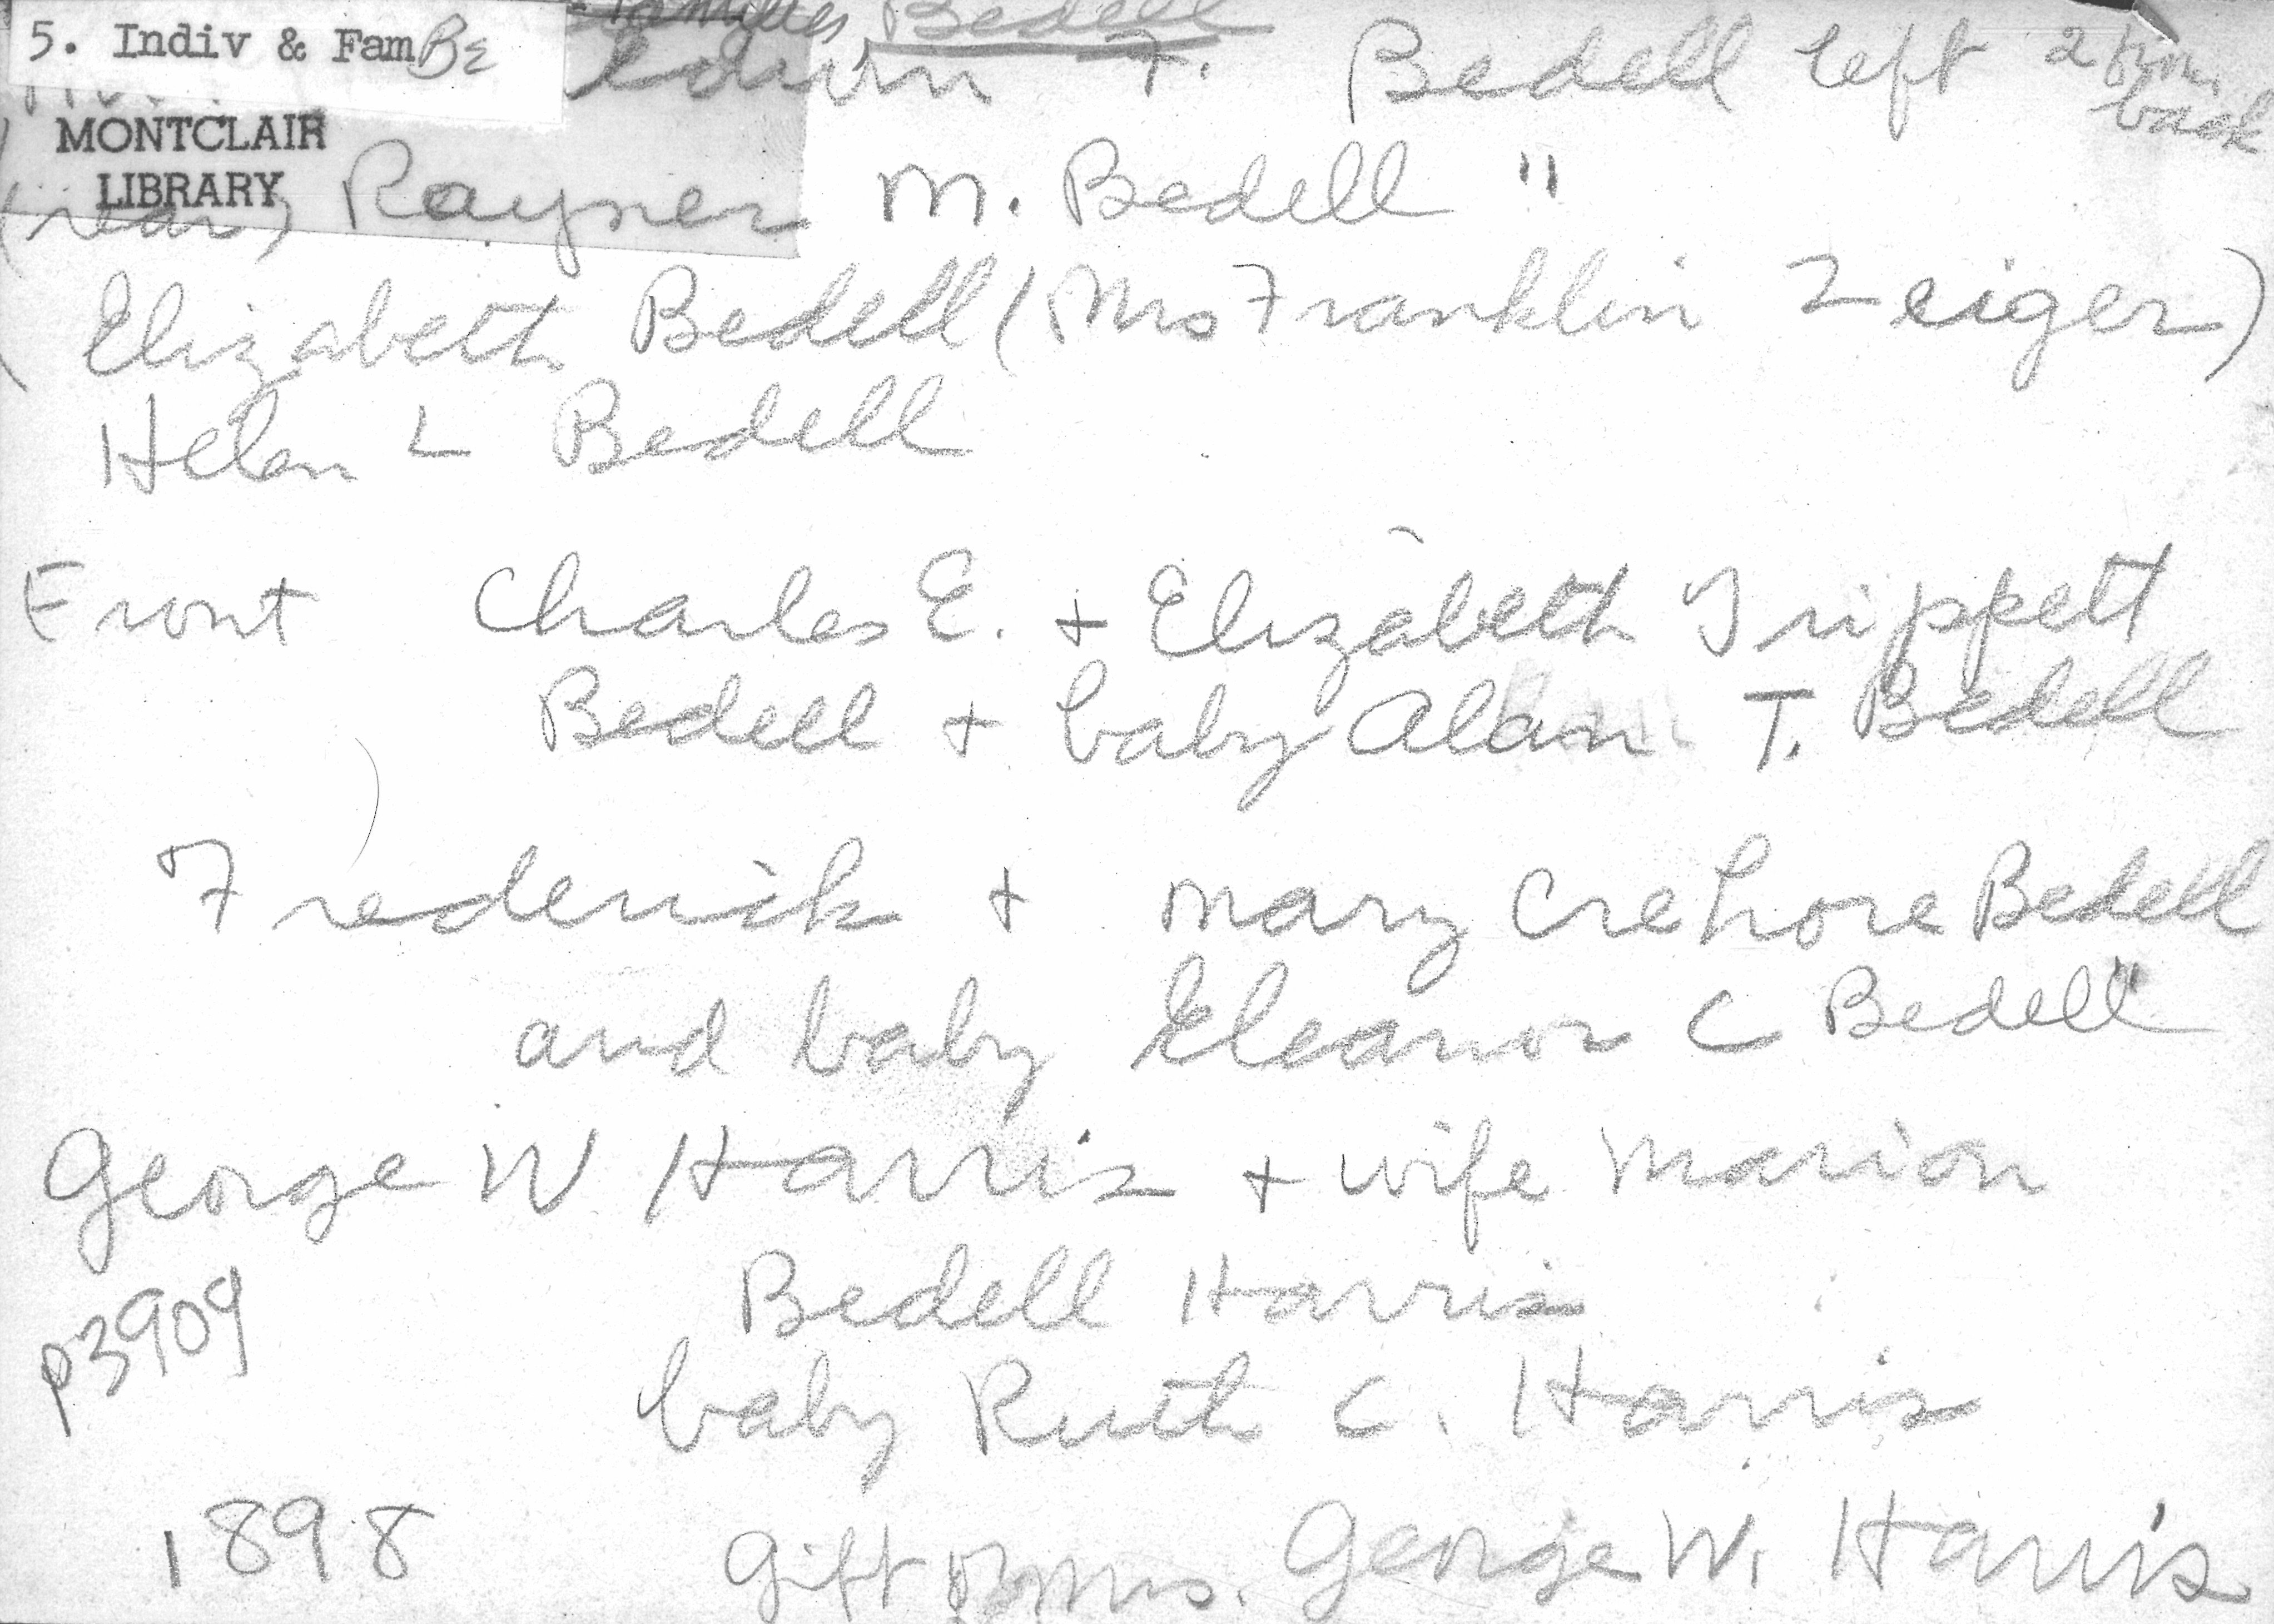 5. Indiv & Fam Be
Families Bedell
Edwin F. Bedell left 2 from
back
MONTCLAIR
LIBRARY
(rear) Rayner M. Bedell "
(Elizabeth Bedell (Mrs Franklin Zeiger)
Helen L Bedell
Front Charles E. + Elizabeth Trippett
Bedell + baby Alan T. Bedell
Frederick + Mary Crehore Bedell
and baby Eleanor C Bedell"
George W Harris + wife Marion
Bedell Harris
p3909
baby Ruth C. Harris
1898 Gift Mrs. George W. Harris